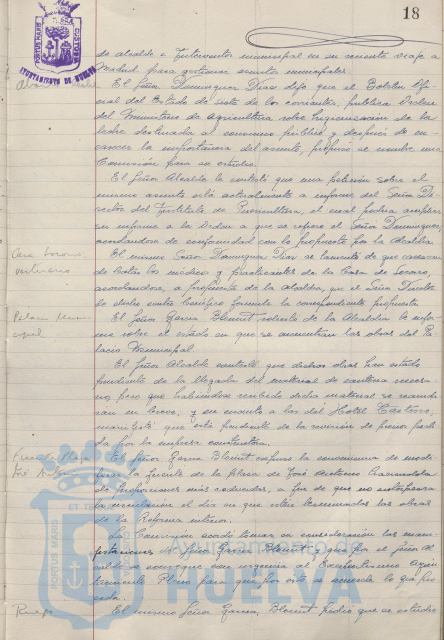 18
AYUNTAMIENTO DE HUELVA
de alcalde e Interventor municipal en su reciente viaje a
Madrid para gestionar asuntos municipales.
El Señor Dominguez Diaz dijo que el Boletin Ofi-
cial del Estado de siete de los corrientes, publica Orden
del Ministerio de Agricultura sobre higienización de la
leche destinada al consumo público y después de en-
carecer la importancia del asunto, propuso se nombre una
Comisión para su estudio.
El Señor Alcalde le contestó que una petición sobre el
mismo asunto está actualmente a informe del Señor Di-
rector del Instituto de Puericultura, el cual podria ampliar
su informe a la Orden a que se refiere el Señor Dominguez,
acordandose de conformidad con lo propuesto por la Alcaldia.
Casa Socorro
El mismo Señor Dominguez Diaz se lamentó de que carecen
de batas los médicos y practicantes de la Casa de Socorro,
acordandose, a propuesta de la Alcaldia, que el Señor Director
de dicho centro benéfico formule la correspondiente propuesta.
Palacio
El Señor Garcia Blanut solicitó de la Alcaldia le infor-
me sobre el estado en que se encuentran las obras del Pa-
lacio Municipal.
El Señor Alcalde contestó que dichas obras han estado
pendiente de la llegada del material de cantera necesa-
rio, pero que habiendose recibido dicho material se reanuda-
ran en breve, y en cuanto a las del Hotel
manifestó que está pendiente de la revisión de precios pedi-
da por la empresa constructora.
El Señor Garcia Blanut expuso la conveniencia de modi-
ficar la fuente de la plaza de José Antonio
de proporciones más reducidas, a fin de que no entorpezca
la circulación el dia en que estén terminadas las obras
de la Reforma interior.
La Comisión acordó tomar en consideración las mani-
festaciones del Señor Garcia Blanut y que por el Señor Al-
calde se
tamiento Pleno para que por éste se acuerde lo que pro-
ceda.
El mismo Señor Garcia Blanut pidió que se estudie
Ayuntamiento de
HUELVA